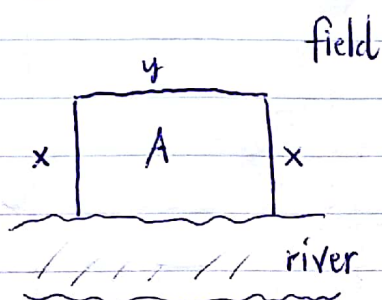 field
y
x A x
river